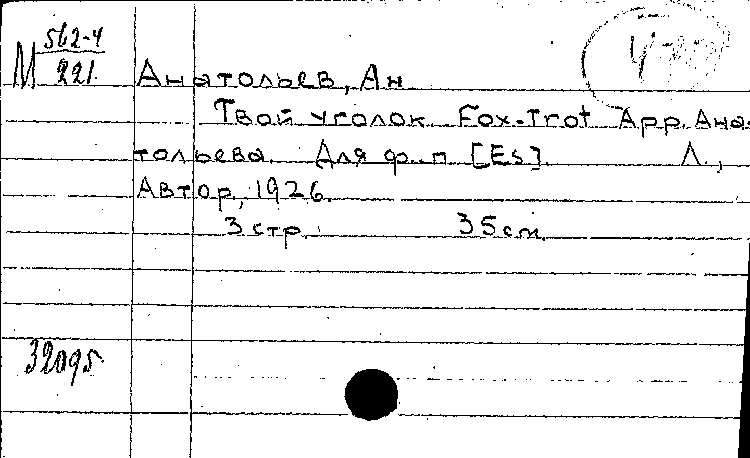 М 562-4
221.
Анатольев, Ан
Твой уголок. Fox-Trot Арр. Ана-
тольева. Для ф.-п. [Es]. Л.,
Автор, 1926.
3 стр. 35 см.
32095